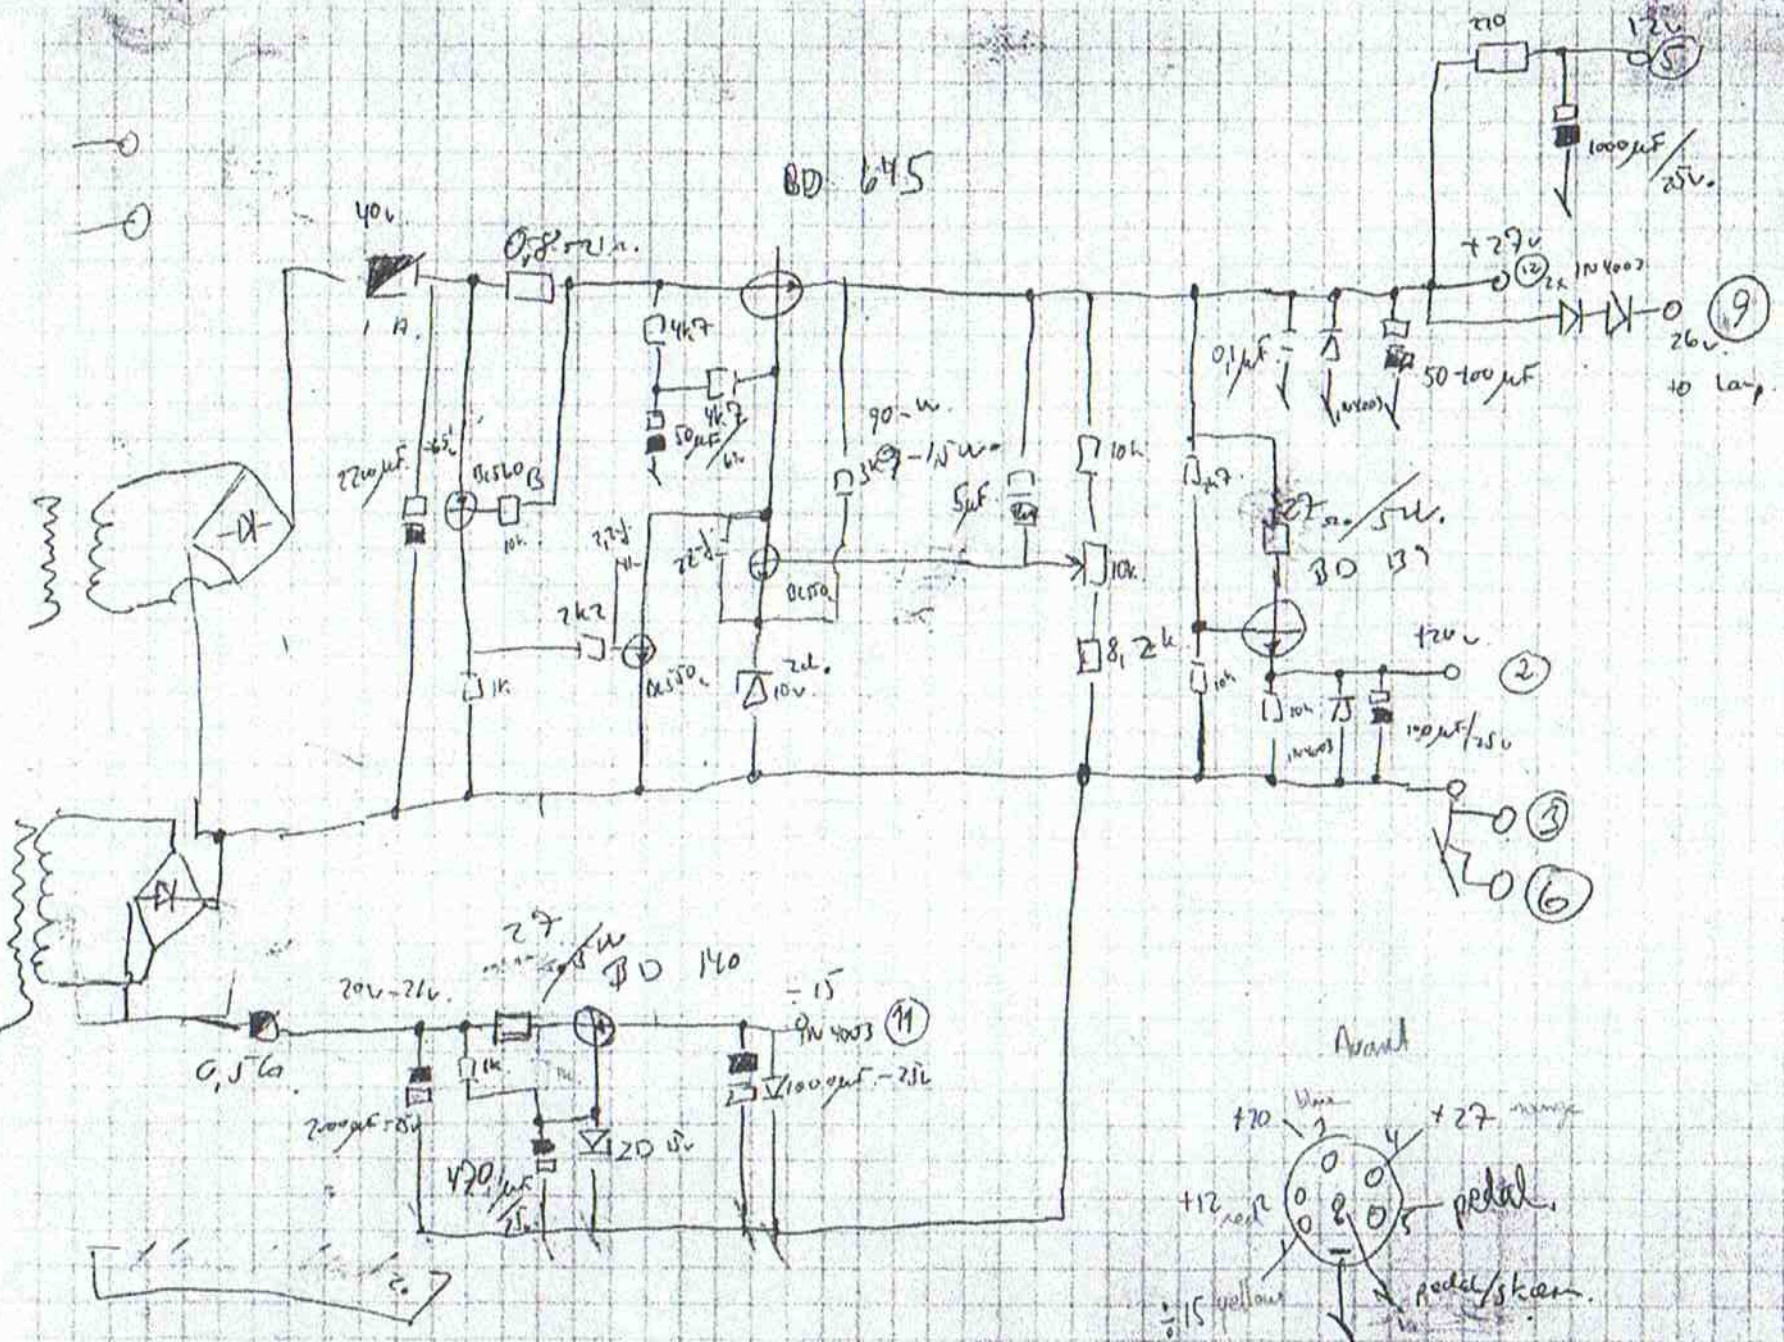 220
12v
5
1000µF/
25v.
BD 645
40v
1 A.
+27v
12
2x 1N4003
9
26v.
to Lamp.
4k7
4k7
50µF/
0,1µF
1N4003
50-100µF
2200µF
BC560 B
10k
5µF
10k
27
BD 139
10k
BC550c
2k2
1k
BC550c
10v
8,2k
10k
+20v
2
10k
1N4003
100µF/25v
3
6
27
BD 140
20v-21v.
÷15
1N4003
11
1k
1000µF-25v
ZD 15v
470µF
25v
Avant
+20
blue
3
4
+27
orange
+12
red
2
5
pedal.
1
÷15
yellow
pedal/skærm.